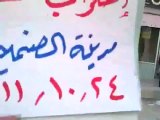 إضراب
مدينة الصنمين
١١/١٠/٢٤